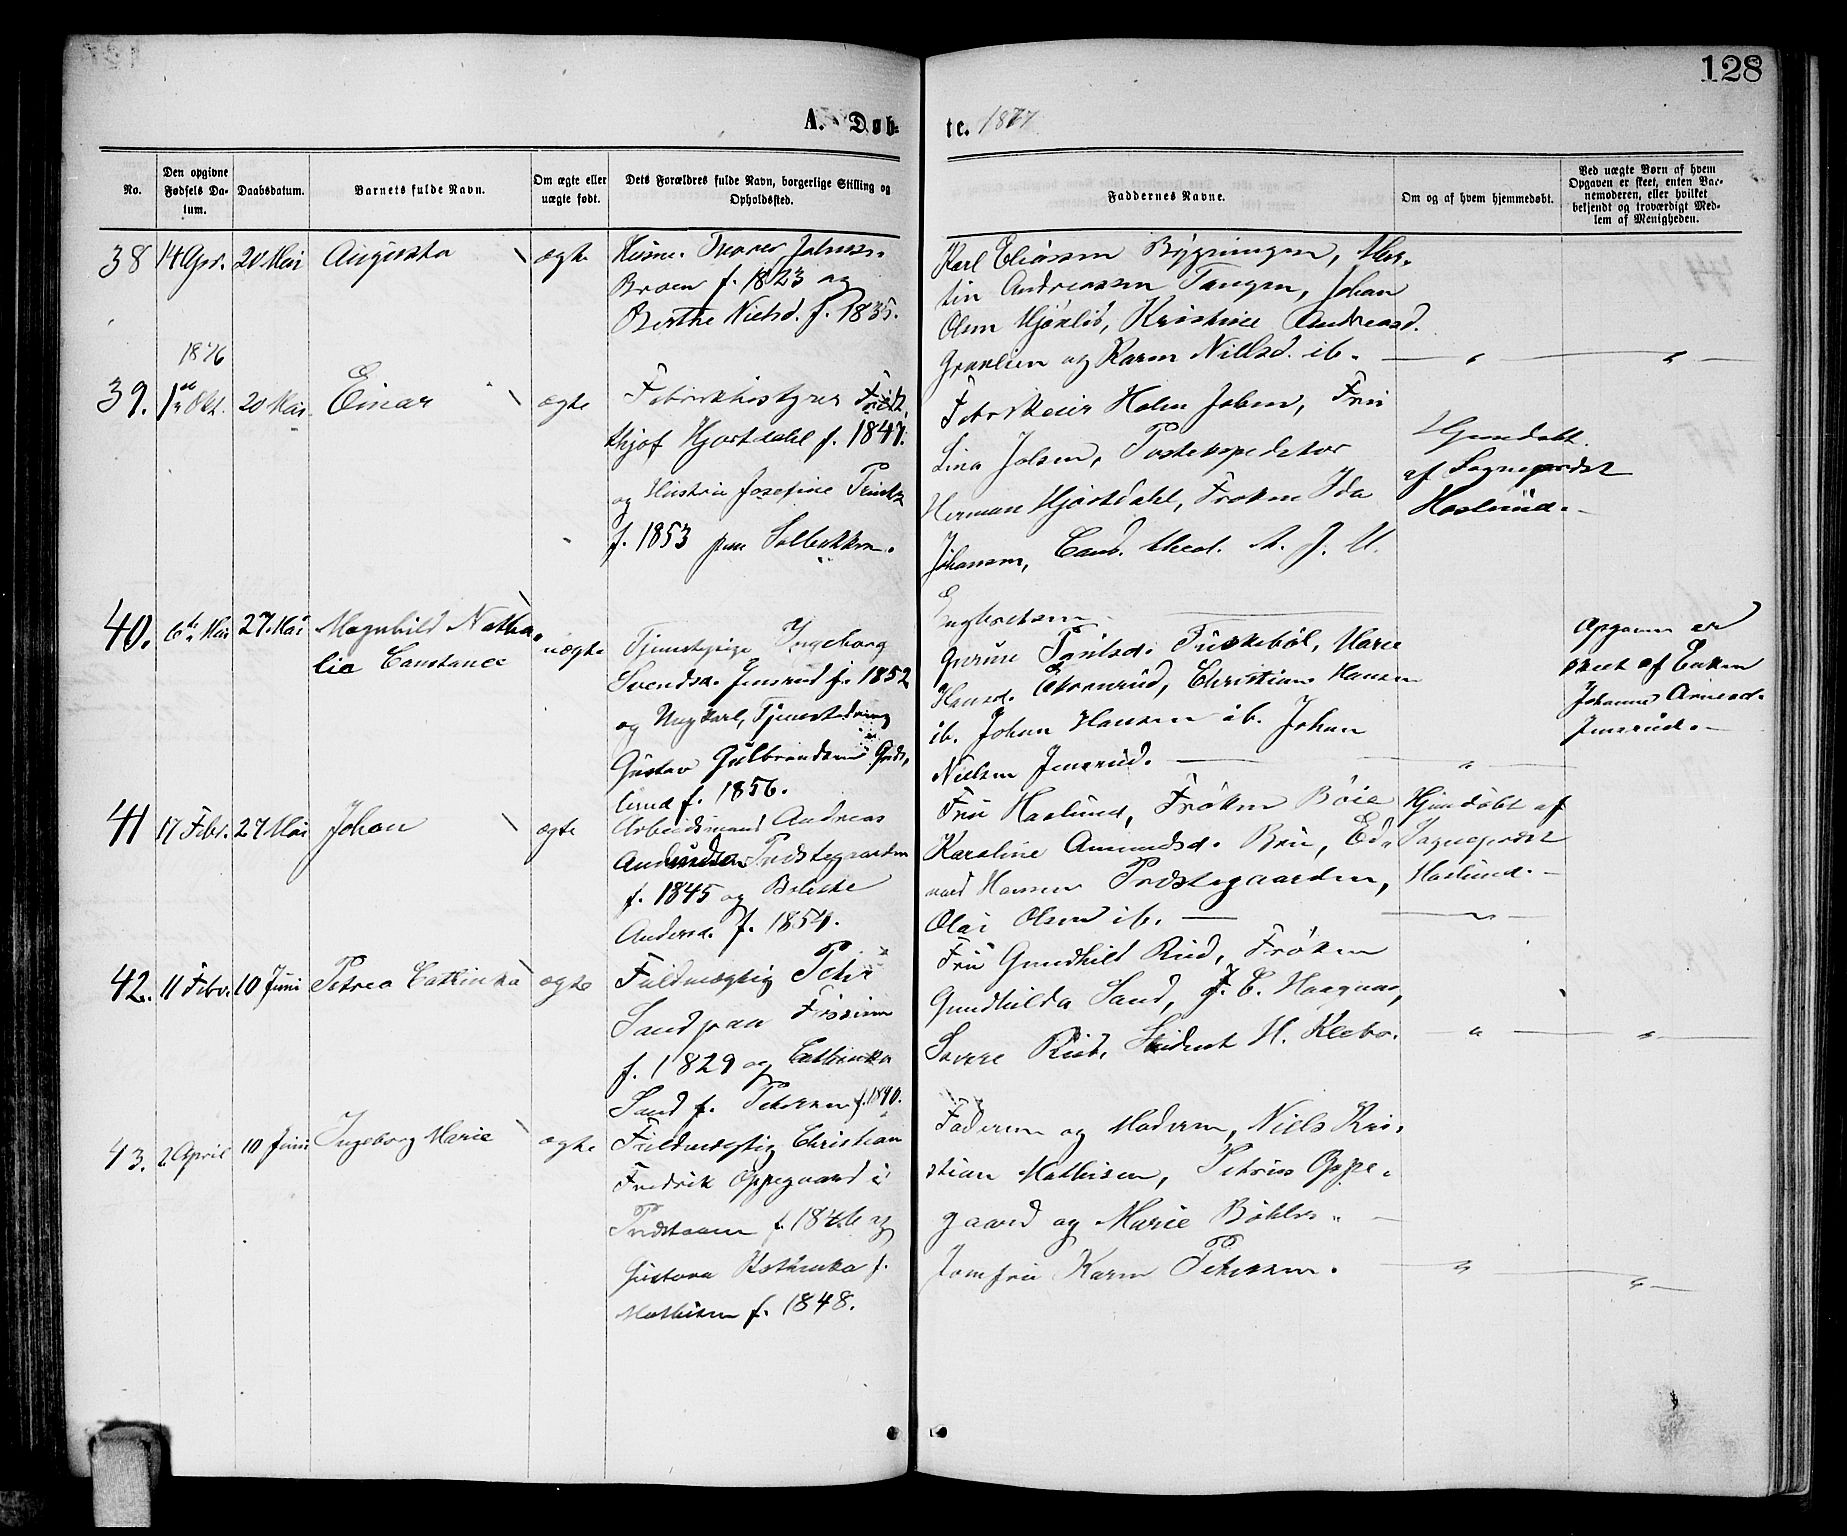 128
A. Døb-
te. 1877
No.
Den opgivne
Fødsels Da-
tum.
Daabsdatum.
Barnets fulde Navn.
Om ægte eller
uægte født.
Dets Forældres fulde Navn, borgerlige Stilling og
Opholdssted.
Faddernes Navne.
Om og af hvem hjemmedøbt.
Ved uægte Børn af hvem
Opgaven er skeet, enten Bar-
nemoderen, eller hvilket
bekjendt og troværdigt Med-
lem af Menigheden.
38 14 Apr. 20 Mai Augusta ægte
Johns.
Braen f. 1823 og
Berthe Nielsd. f. 1835.
Karl Eliassen Bygningen, Mar-
tin Andreassen Tangen, Johan
Olsen Kristine Andreasd.
Granlien og Karen Nielsd. ib.
1876
39. 1 Okt. 20 Mai Einar ægte
Fabrikbestyrer Frid-
thjof Hjortdahl f. 1847
og Hustru Josefine
f. 1853 paa Solbakken.
Fabrikeier Holm Jølsen, Fru
Lina Jølsen, Postexpeditør
Herman Hjortdahl, Frøken Ida
Johansen, Cand. theol. A. J. M.
Engbretsen
Hjemdøbt
af Sognepræst
Haslund.
40. 6te Mai 27 Mai Magnhild Natha-
lie Constance
uægte
Tjenestepige Ingeborg
Svendsd. Jensrud f. 1852
og Ungkarl, Tjenestedreng
Gustav Gulbrandsen
lund f. 1856.
Gurine Paulsd. Fuskebøl, Marie
Hansd. Christian Hansen
ib. Johan Hansen ib. Johan
Nielsen Jensrud.
Opgaven er
skeet af Enken
Johanne Arnesd.
Jensrud.
41 17 Febr. 27 Mai Johan ægte
Arbeidsmand Andreas
Præstegaarden
f. 1845 og Beleste
Andersd. f. 1854.
Fru Haslund, Frøken Bøie
Karoline Amundsd. Bru, Ed-
vard Hansen Præstegaarden,
Olai Olsen ib.
Hjemdøbt af
Sognepræst
Haslund.
42. 11 Febr. 10 Juni Petrea Cathinka ægte
Fuldmægtig Peter
Sand paa
f. 1829 og Cathinka
Sand f. Petersen f. 1840.
Fru Gundhild Rud, Frøken
Gundhilda Sand, J. C. Haagnæs,
Rud, Student H.
43. 2 April 10 Juni Ingeborg Marie ægte
Fuldmægtig Christian
Fredrik Oppegaard i
f. 1846 og
Gustava Kathinka f.
Mathisen f. 1848.
Faderen og Moderen, Niels Kri-
stian Mathisen, Petrus Oppe-
gaard og Marie Bøhler
Jomfru Karen Petersen.